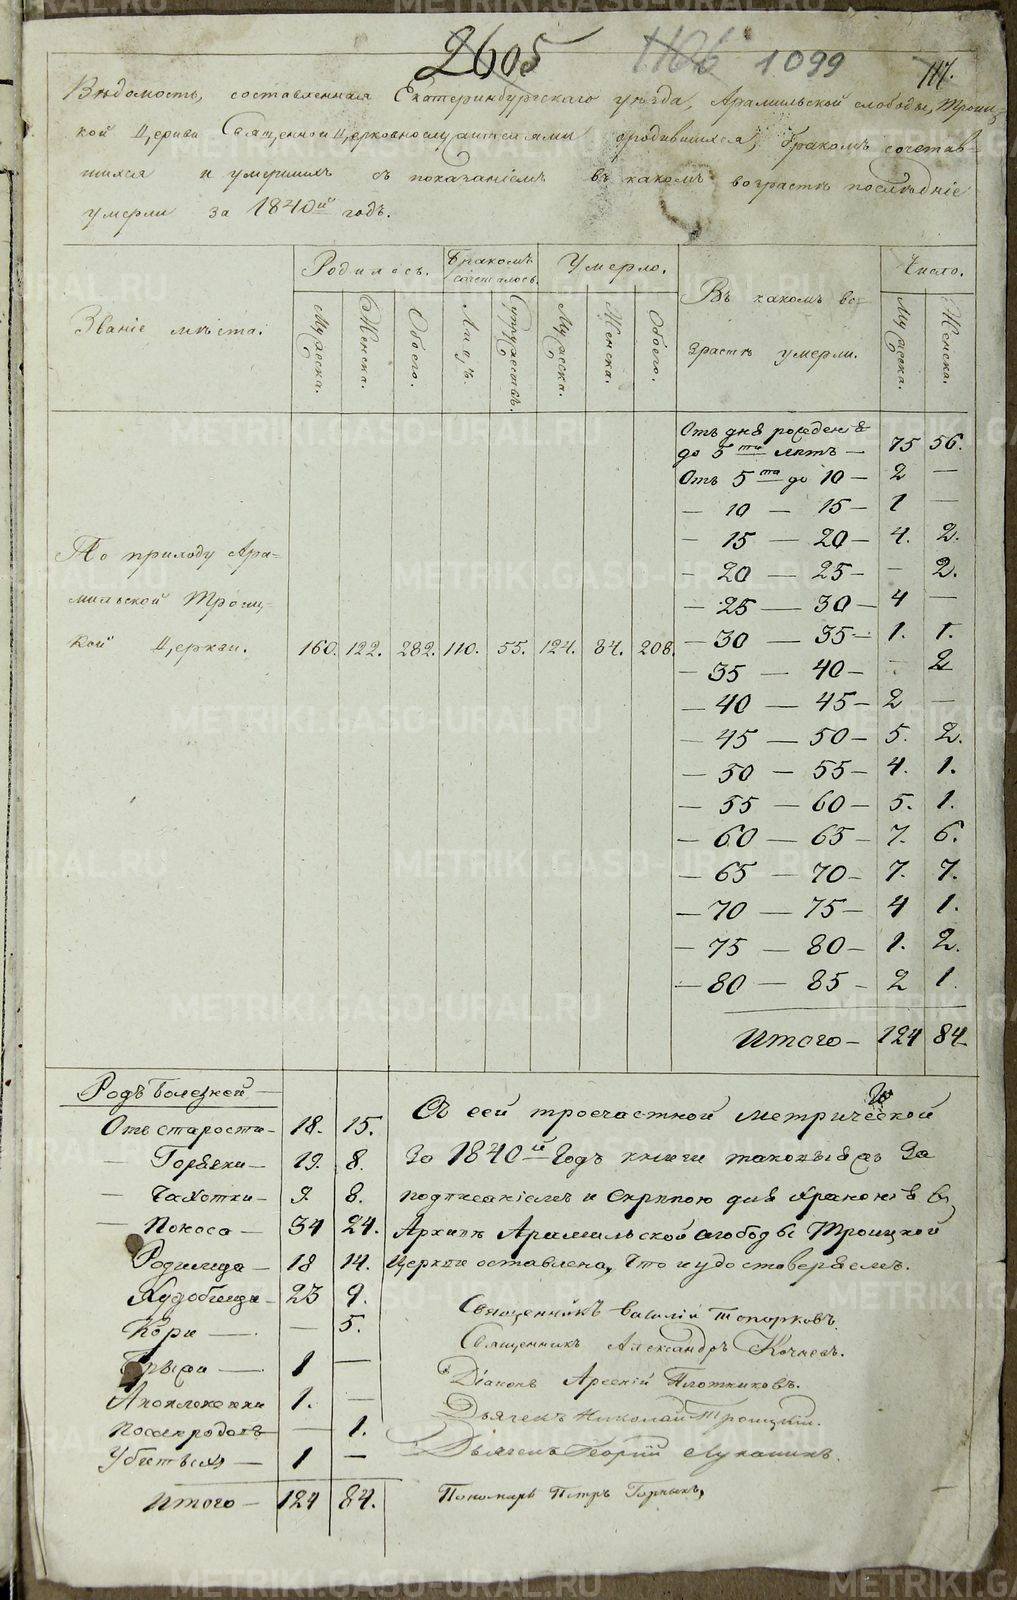 2605 1106 1099 117.
Вѣдомость, составленная Екатеринбургскаго уѣзда, Арамильской слободы, Троиц-
кой Церкви Священноцерковнослужителями о родившихся, бракомъ сочетав-
шихся и умершихъ съ показаніемъ въ какомъ возрастѣ послѣдніе
умерли за 1840й годъ.
Званіе мѣста. Родилось. Бракомъ сочеталось. Умерло. Въ какомъ воз- Число.
растѣ умерли.
Мужеска. Женска. Обоего. Лицъ. Супружествъ. Мужеска. Женска. Обоего. Мужеска. Женска.
Отъ дня рожденія
до 5ти лѣтъ — 75 56.
Отъ 5ти до 10 — 2 —
— 10 — 15 — 1 —
— 15 — 20 — 4. 2.
— 20 — 25 — – 2.
— 25 — 30 — 4 —
— 30 — 35 — 1. 1.
— 35 — 40 — – 2
— 40 — 45 — 2 —
— 45 — 50 — 5. 2.
— 50 — 55 — 4. 1.
— 55 — 60 — 5. 1.
— 60 — 65 — 7. 6.
— 65 — 70 — 7. 7.
— 70 — 75 — 4 1.
— 75 — 80 — 1. 2.
— 80 — 85 — 2 1.
Итого — 124 84
По приходу Ара-
мильской Троиц-
кой Церкви. 160. 122. 282. 110. 55. 124. 84. 208.
Родъ болезней —
Отъ старости — 18. 15.
— Горячки — 19. 8.
— Чахотки — 9. 8.
— Поноса — 34 24.
Родимца — 18 14.
Худобища — 23 9.
Кори — — 5.
Грыжи — 1 —
1. —
— 1.
1 —
Итого — 124 84.
Съ сей троечастной метрической
За 1840й Годъ книги таковыя съ За
подписаніемъ и скрѣпою для храненія въ
Архивѣ Арамильской слободы Троицкой
Церкви оставлена, Что и удостоверяемъ.
Священникъ Василій Топорковъ.
Священникъ Александръ Кочневъ.
Діаконъ Арсеній Плотниковъ.
Дьячекъ Николай Троицкій.
Дьячекъ Георгій Луканинъ.
Пономарь Петръ
METRIKI.GASO-URAL.RU